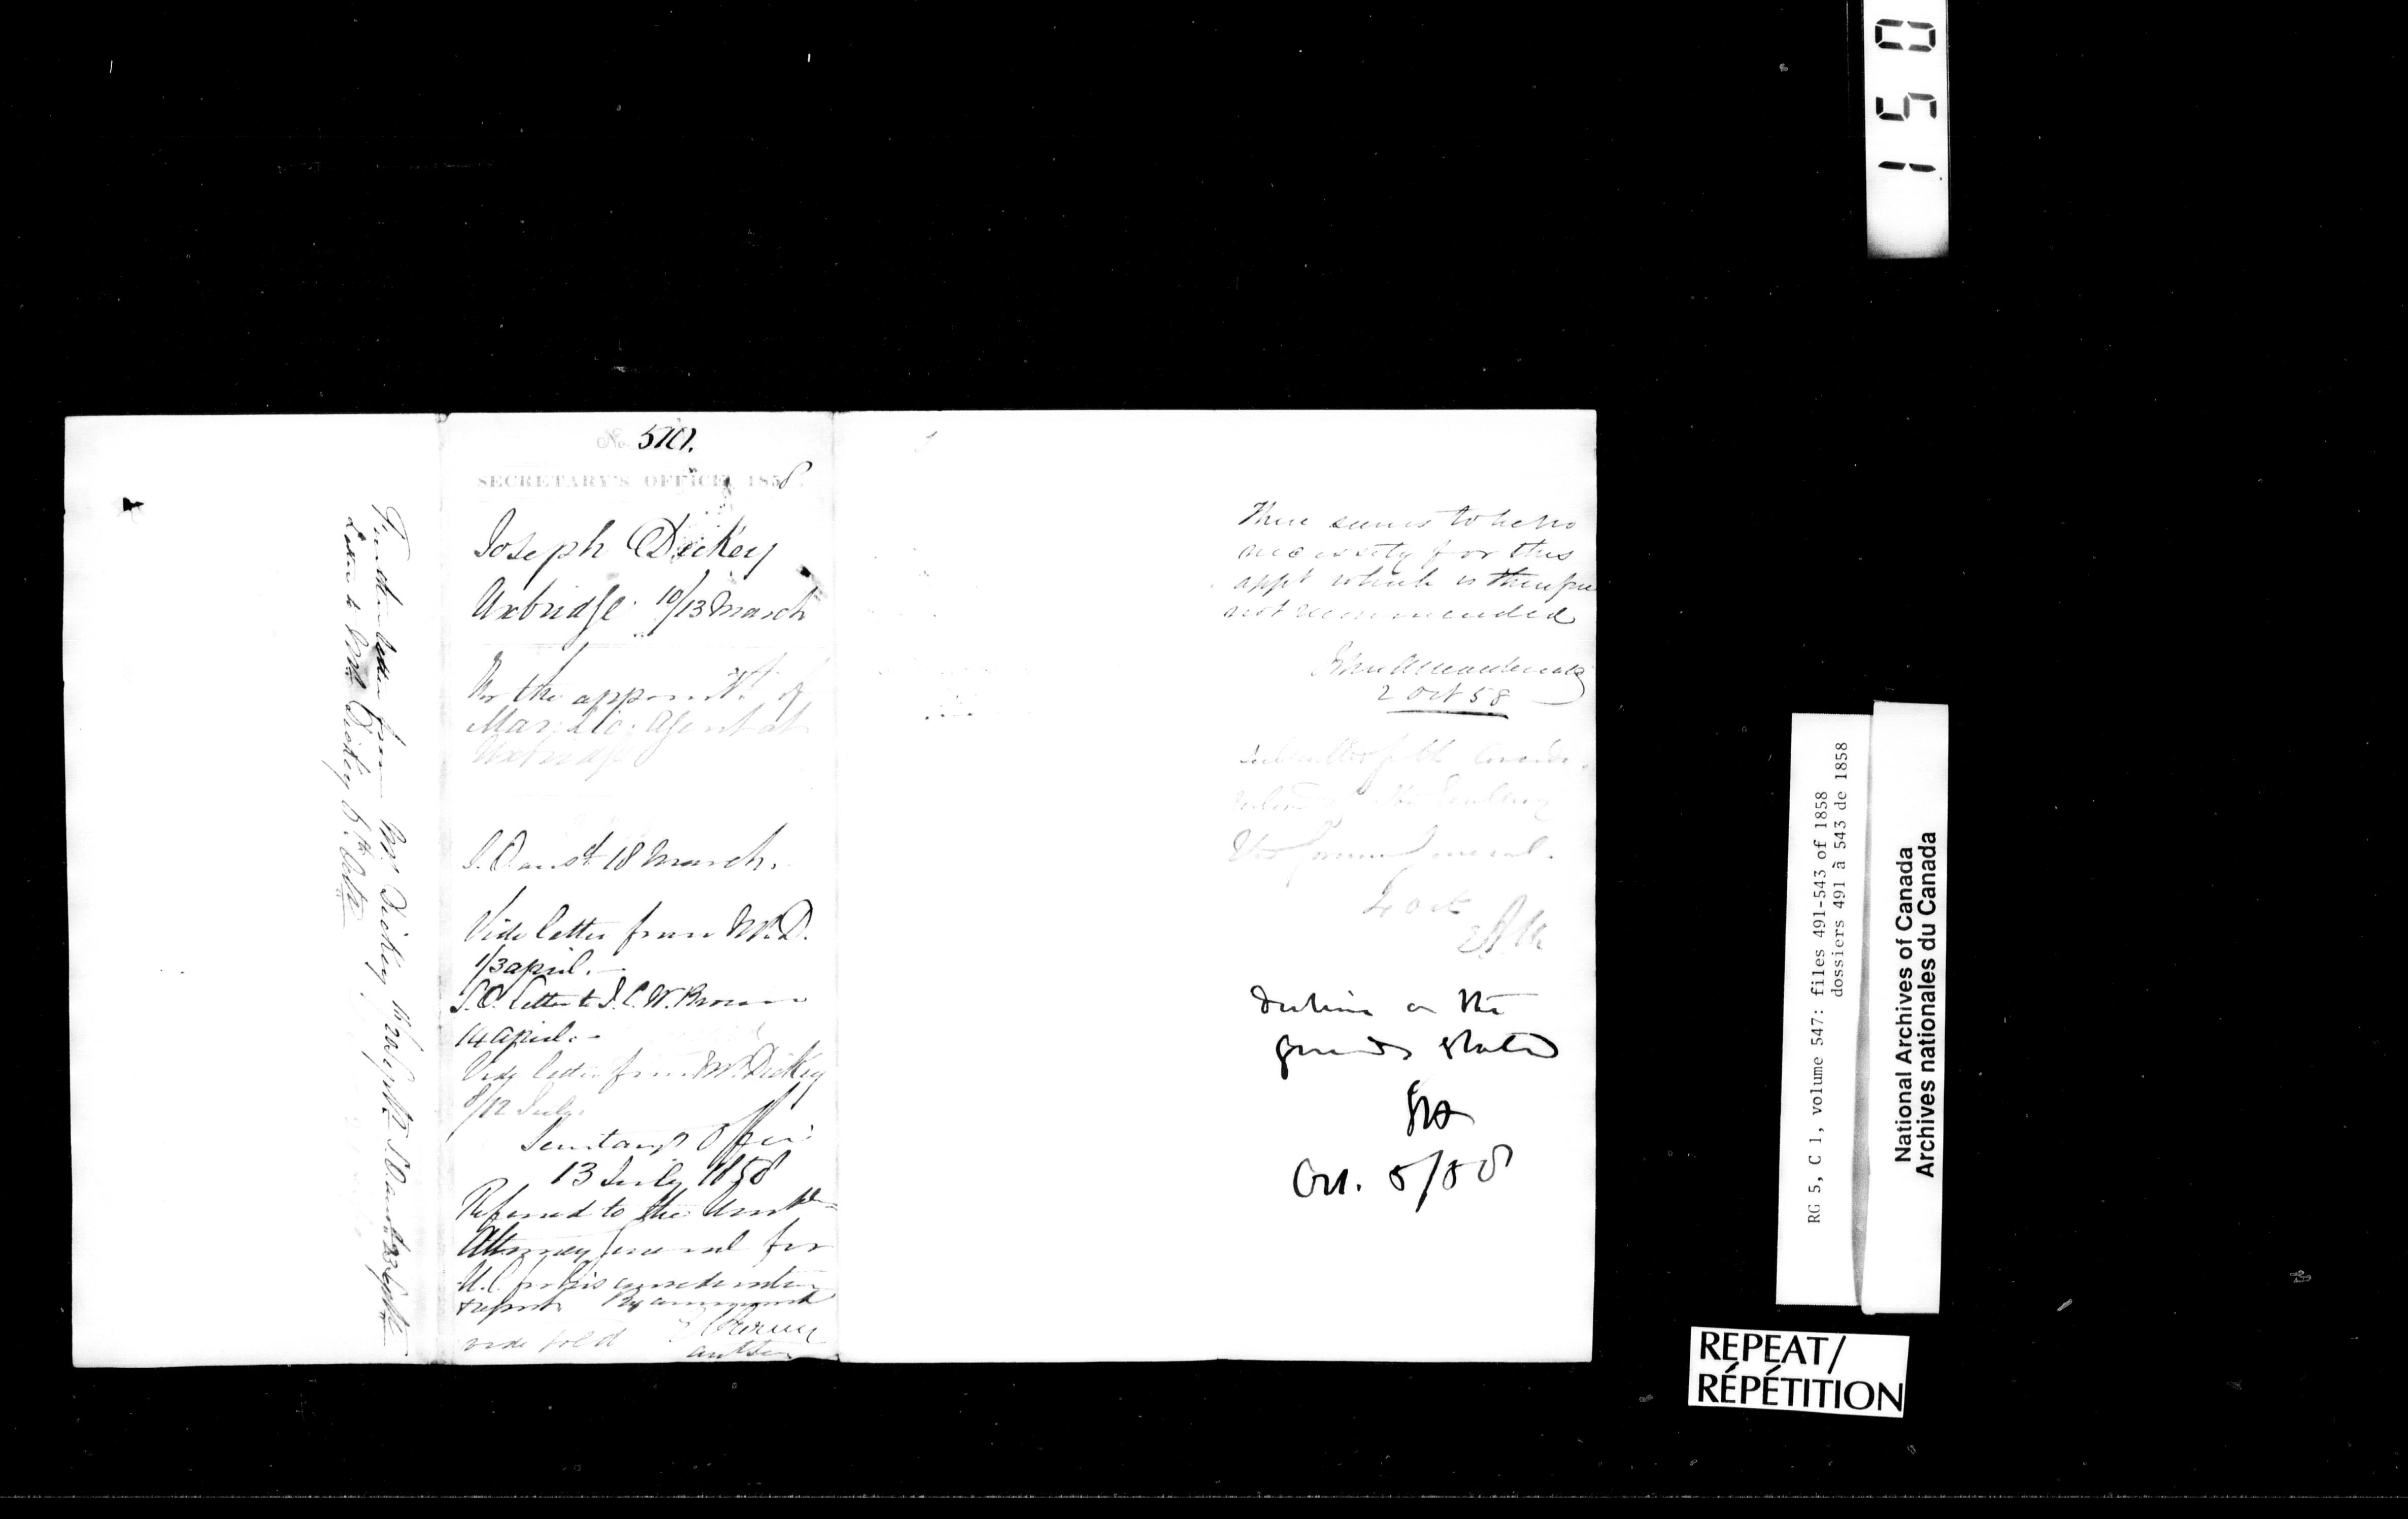 Further letter from Mr Dickey 16/20 Septr. S.O. ansd. 23 Septr.
Letter to Mr. Dickey 8th Octr.
No. 510.
SECRETARY'S OFFICE, 1858.
Joseph Dickey
Uxbridge 10/13 March
For the appointt. of
Mar: Lic: Agent at
Uxbridge
S.O. ansd. 18 March.
Vide letter from Mr. D.
1/3 April.
S.O. letter to J.C.W. Brown
14 April.
Vide letter from Mr. Dickey
8/12 July.
Secretary's Office
13 July 1858
Referred to the Honble
Attorney General for
U.C. for his consideration
& report By command
vide fold
There seems to be no
necessity for this
appt which is therefore
not recommended
John A Macdonald
2 Oct 58
Submitted for the Conside-
ration of His Excellency
The Governor General.
4 Oct
Decline on the
grounds stated
Oct. 5/58
150
RG 5, C 1, volume 547: files 491-543 of 1858
dossiers 491 à 543 de 1858
National Archives of Canada
Archives nationales du Canada
REPEAT/
RÉPÉTITION